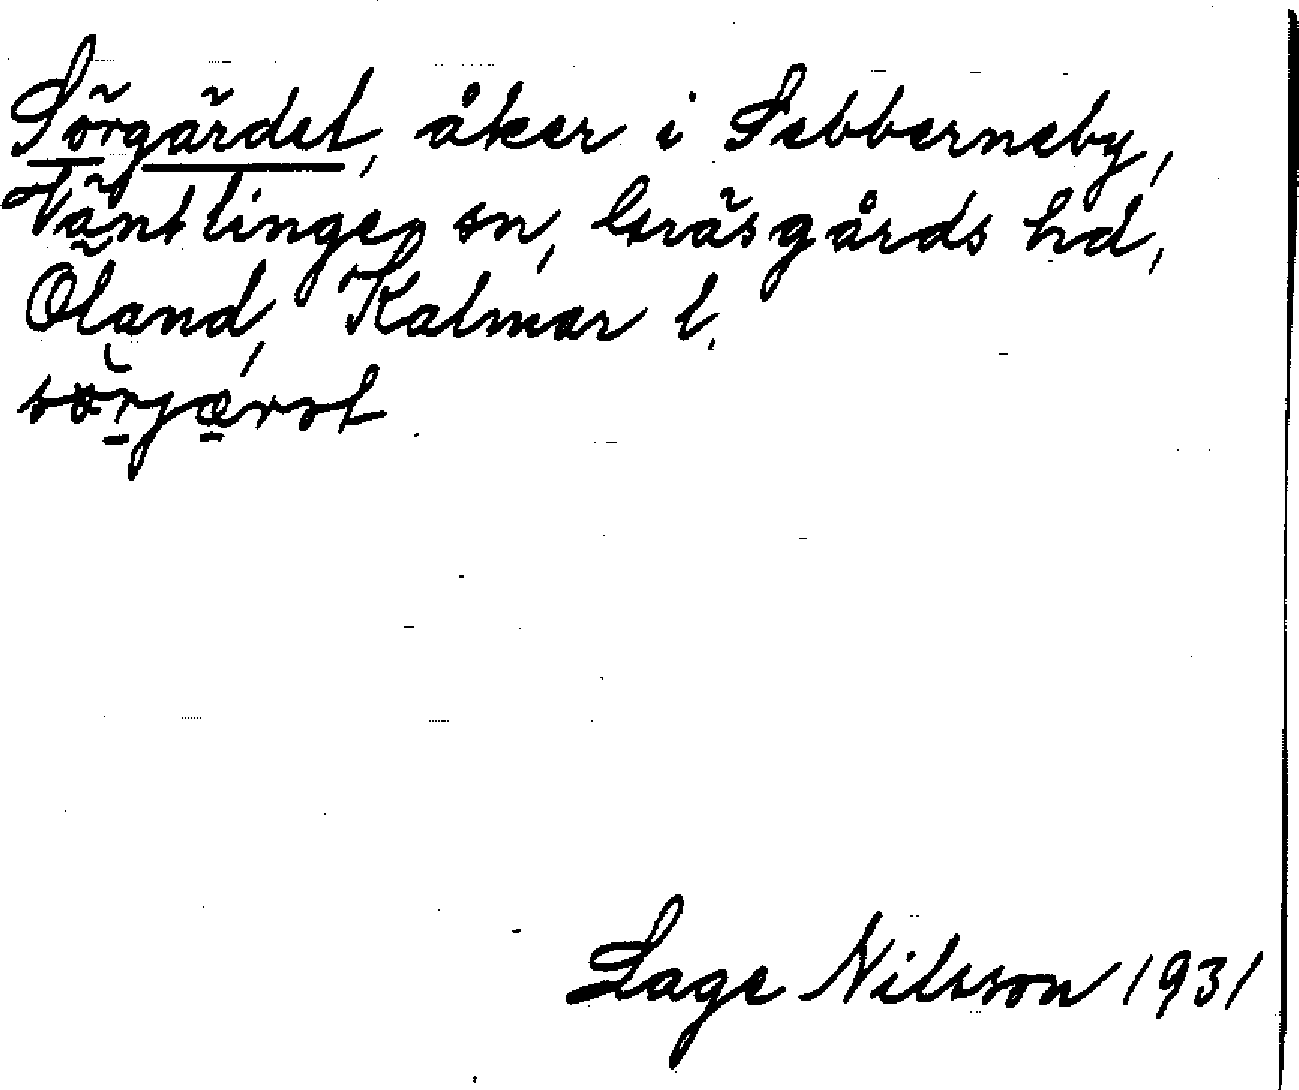 Sörgärdet, åker i Sebberneby,
Väntlinge sn, Gräsgårds hd,
Öland, Kalmar l.
sörjærət
Sage Nilsson 1931